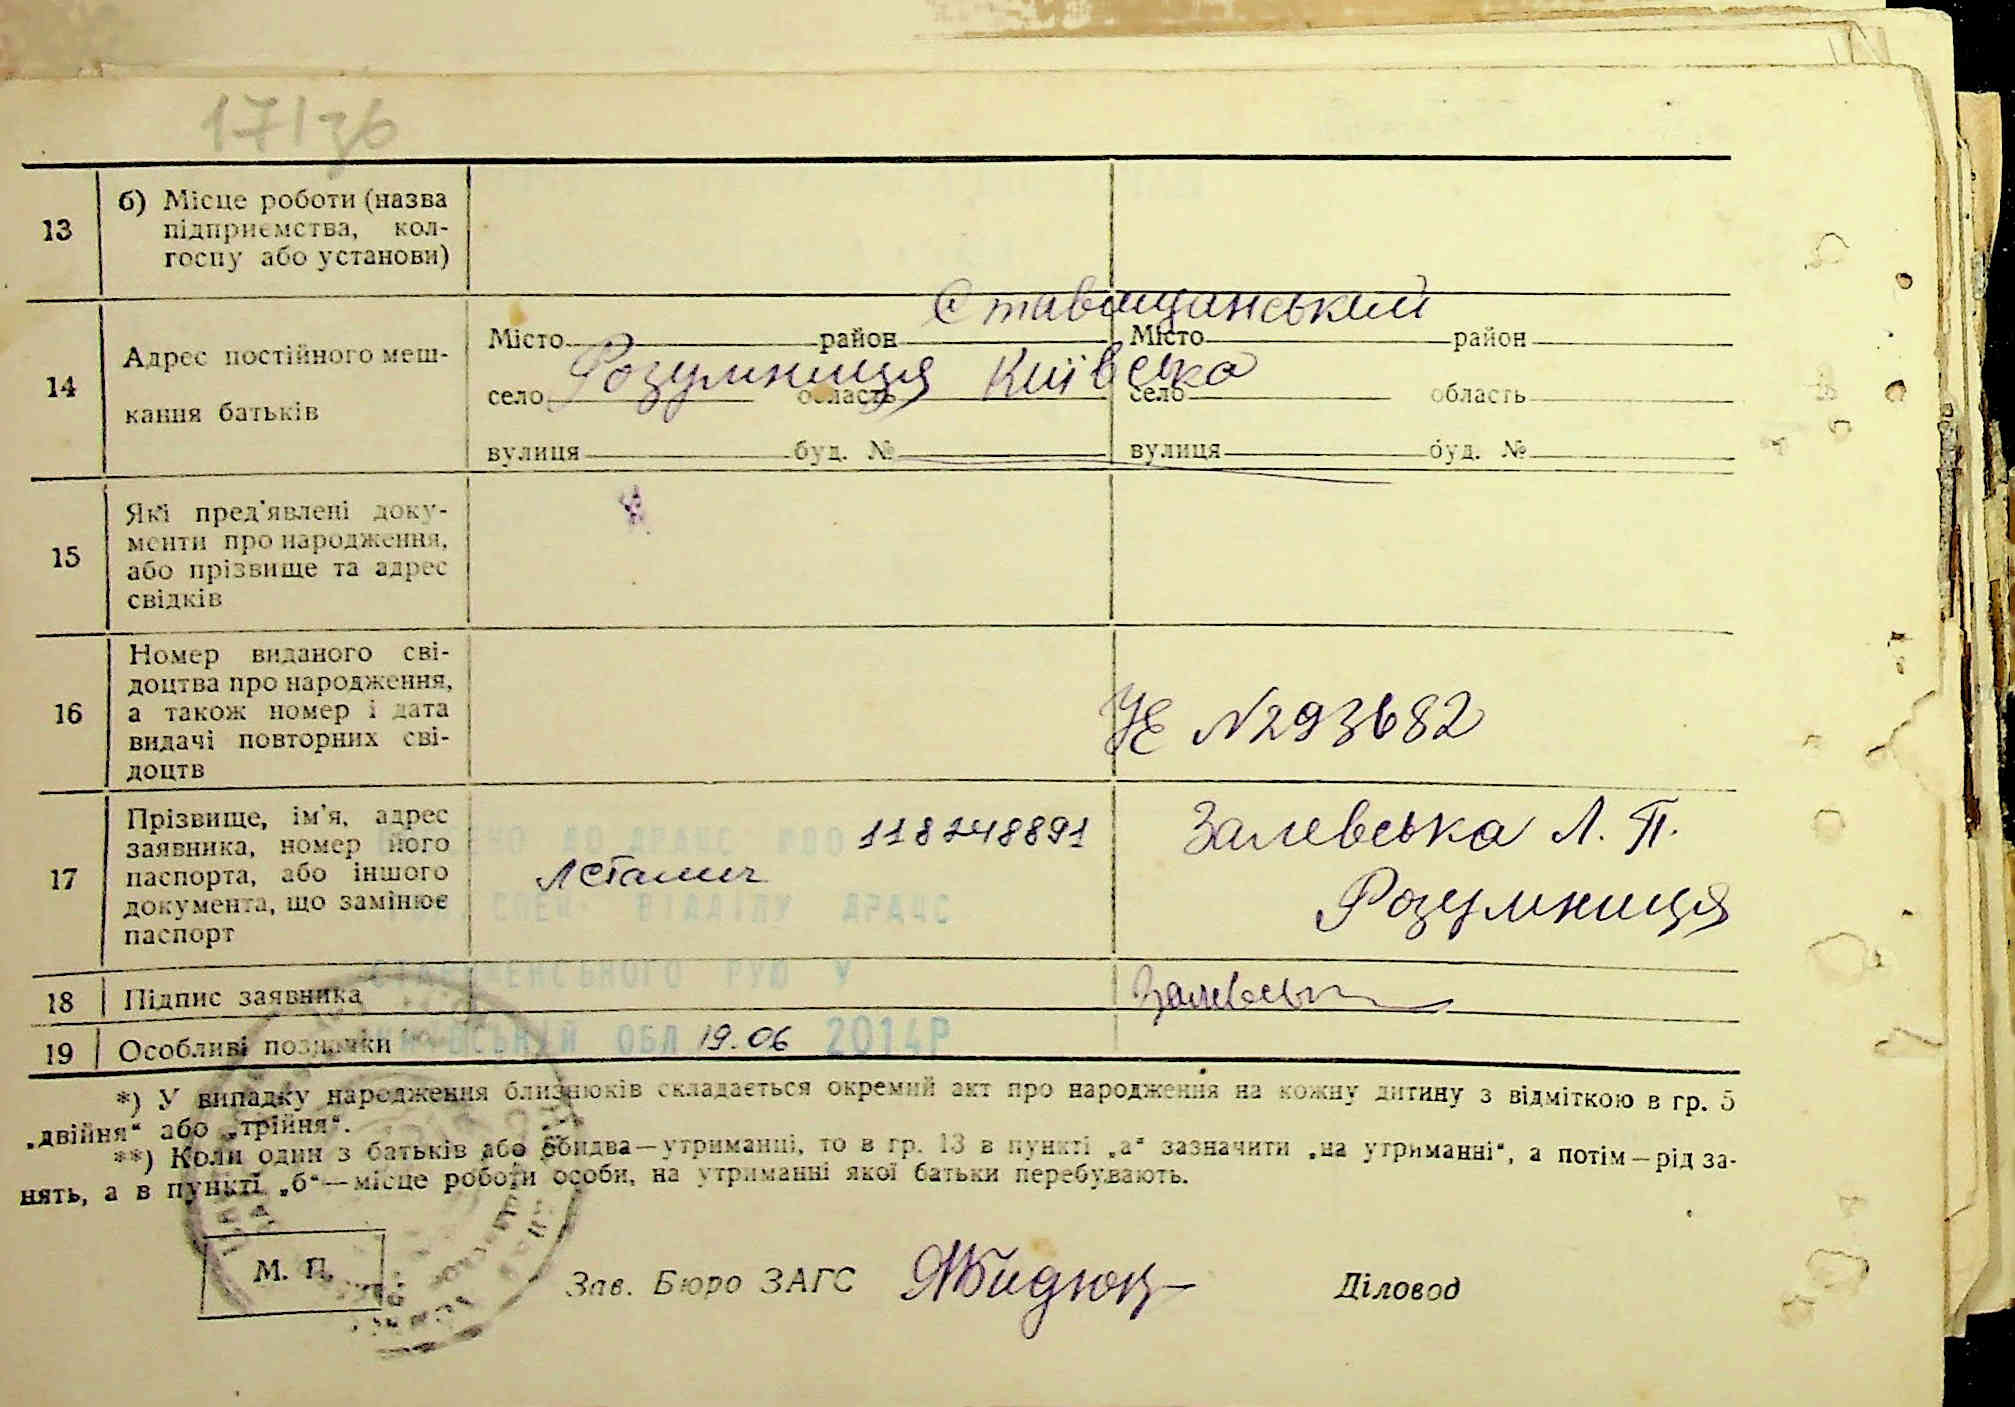 13
б) Місце роботи (назва
підприємства, кол-
госпу або установи)
14
Адрес постійного меш-
кання батьків
Ставищанський
Місто район Місто район
Розумниця Київська
село область село область
вулиця буд. № вулиця буд. №
15
Які пред'явлені доку-
менти про народження,
або прізвище та адрес
свідків
16
Номер виданого сві-
доцтва про народження,
а також номер і дата
видачі повторних сві-
доцтв
УЕ N293682
17
Прізвище, ім'я, адрес
заявника, номер його
паспорта, або іншого
документа, що замінює
паспорт
ДО ДРАЦС
118248891
ВІДДІЛУ ДРАЦС
РУЮ У
Залевська Л. П.
Розумниця
18 Підпис заявника
19 Особливі позначки
ОБЛ 19.06 2014Р
*) У випадку народження близнюків складається окремий акт про народження на кожну дитину з відміткою в гр. 5
„двійня“ або „трійня“.
**) Коли один з батьків або обидва—утриманці, то в гр. 13 в пункті „а“ зазначити „на утриманні“, а потім—рід за-
нять, а в пункті „б“—місце роботи особи, на утриманні якої батьки перебувають.
М. П.
Зав. Бюро ЗАГС
Діловод